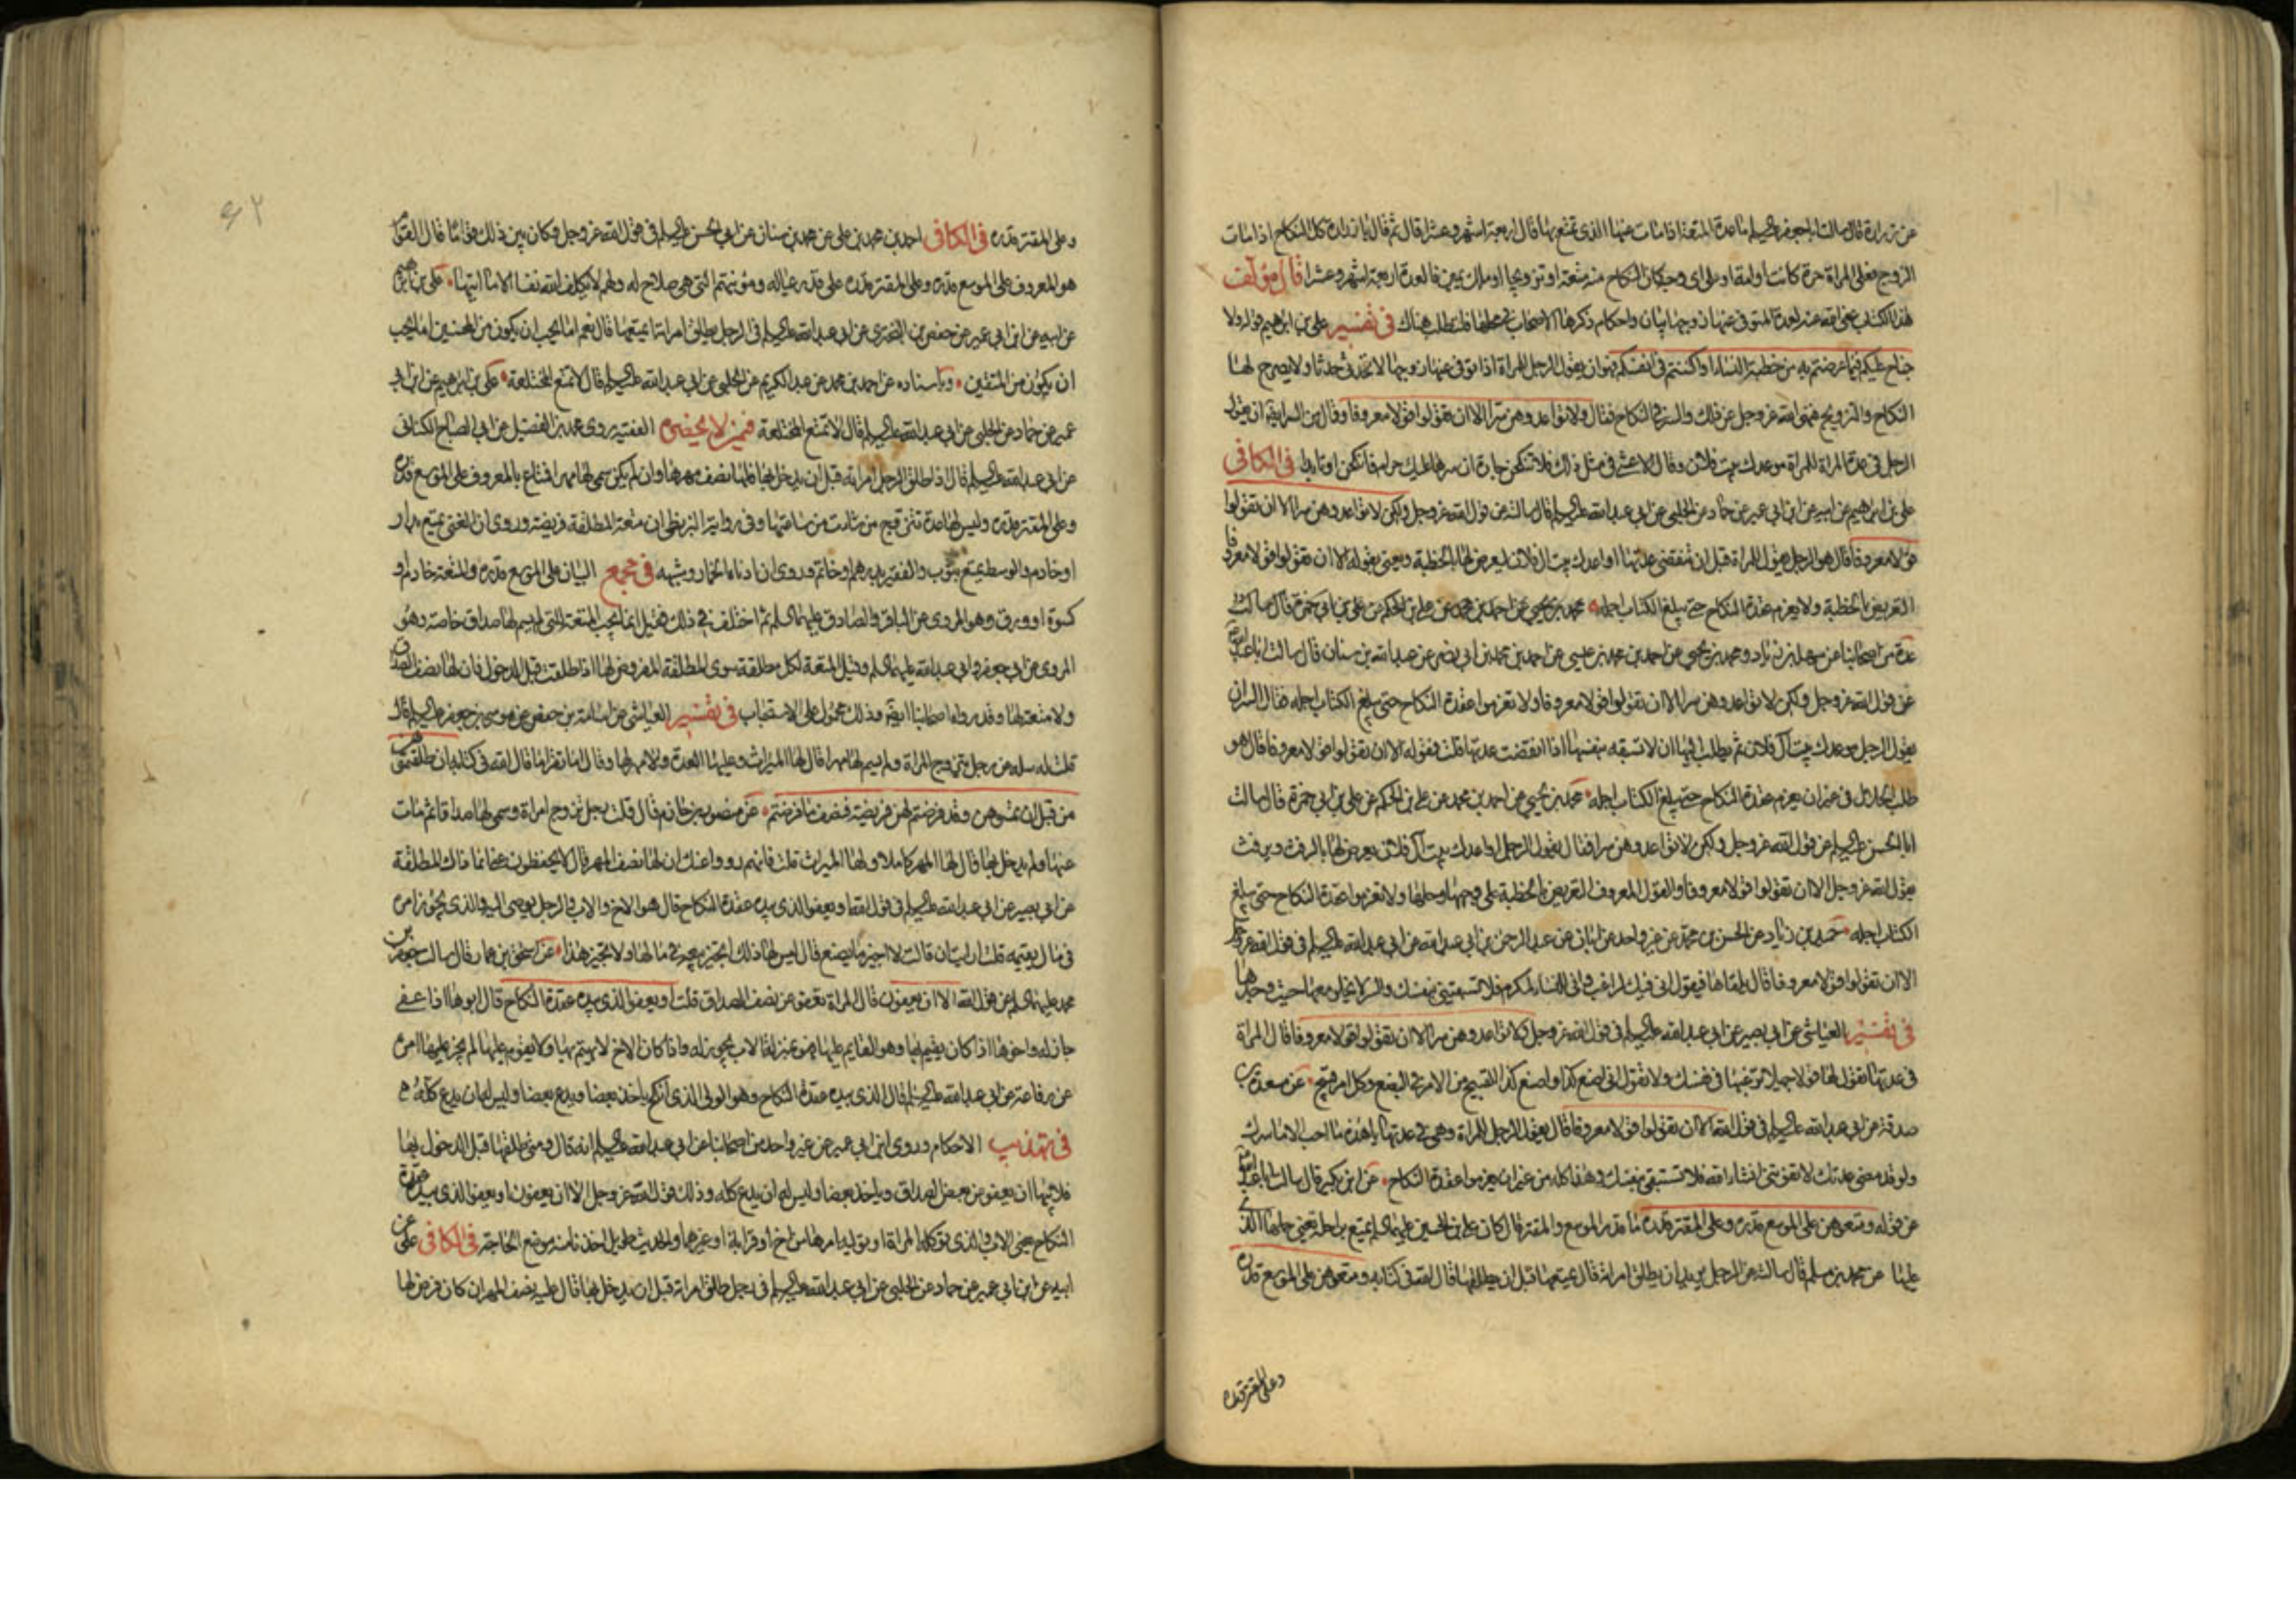 عن زرارة قال سالت ابا جعفر عليه السلم ما عدة المتعة اذا مات عنها الذى تمتع بها قال اربعة اشهر وعشرا قال ثم قال يا زرارة كل النكاح اذا مات
الزوج فعلى المراة حرة كانت او امة او على اى وجه كان النكاح منه متعة او تزويجا او ملك يمين فالعدة اربعة اشهر وعشرا قال مؤلف
هذا الكتاب عفى الله عنه لعدة المتوفى عنها زوجها بيان واحكام ذكرها الاصحاب فى محلها فلتطلب هناك فى تفسير على بن ابراهيم قوله ولا
جناح عليكم فيما عرضتم به من خطبة النساء او اكننتم فى انفسكم فهو ان يقول الرجل للمراة اذا توفى عنها زوجها لا تحدثى حدثا ولا يصرح لها
النكاح والتزويج فنهى الله عز وجل عن ذلك والسر فى النكاح فقال ولا تواعدوهن سرا الا ان تقولوا قولا معروفا وقال من السر ايضا ان يقول
الرجل فى عدة المراة للمراة موعدك بيت فلان وقال الاعشى فى مثل ذلك فلا تنكحن جارة ان سرها عليك حرام فانكحن او تابدا فى الكافى
على بن ابراهيم عن ابيه عن ابن ابى عمير عن حماد عن الحلبى عن ابى عبد الله عليه السلم قال سالته عن قول الله عز وجل ولكن لا تواعدوهن سرا الا ان تقولوا
قولا معروفا قال هو الرجل يقول للمراة قبل ان تنقضى عدتها اواعدك بيت ال فلان ليعرض لها بالخطبة ويعنى بقوله الا ان تقولوا قولا معروفا
التعريض بالخطبة ولا يعزم عقدة النكاح حتى يبلغ الكتاب اجله
عدة من اصحابنا عن سهل بن زياد ومحمد بن يحيى عن احمد بن محمد بن عيسى عن احمد بن محمد بن ابى نصر عن عبد الله بن سنان قال سالت ابا عبد الله
عن قول الله عز وجل ولكن لا تواعدوهن سرا الا ان تقولوا قولا معروفا ولا تعزموا عقدة النكاح حتى يبلغ الكتاب اجله فقال السر ان
يقول الرجل موعدك بيت آل فلان ثم يطلب اليها ان لا تسبقه بنفسها اذا انقضت عدتها قلت فقوله الا ان تقولوا قولا معروفا قال هو
طلب الحلال فى غير ان يعزم عقدة النكاح حتى يبلغ الكتاب اجله محمد بن يحيى عن احمد بن محمد عن على بن الحكم عن على بن ابى حمزة قال سالت
ابا الحسن عليه السلم عن قول الله عز وجل ولكن لا تواعدوهن سرا فقال يقول الرجل اواعدك بيت آل فلان يعرض لها بالرفث ويرفث
يقول الله عز وجل الا ان تقولوا قولا معروفا والقول المعروف التعريض بالخطبة على وجهها وحلها ولا تعزموا عقدة النكاح حتى يبلغ
الكتاب اجله حميد بن زياد عن الحسن بن محمد عن غير واحد عن ابان عن عبد الرحمن بن ابى عبد الله عن ابى عبد الله عليه السلم فى قول الله عز وجل
الا ان تقولوا قولا معروفا قال يلقاها فيقول انى فيك لراغب وانى للنساء لمكرم فلا تسبقينى بنفسك والسر لا يخلو معها حيث وعدها
فى تفسير العياشى عن ابى بصير عن ابى عبد الله عليه السلم فى قول الله عز وجل لا تواعدوهن سرا الا ان تقولوا قولا معروفا قال المراة
فى عدتها تقول لها قولا جميلا ترغبها فى نفسك ولا تقول انى اصنع كذا واصنع كذا القبيح من الامر فى البضع وكل امر قبيح عن مسعدة بن
صدقة عن ابى عبد الله عليه السلم فى قول الله الا ان تقولوا قولا معروفا قال يقول الرجل للمراة وهى فى عدتها يا هذه ما احب الا ما اسرك
ولو قد مضى عدتك لا تفوتنى انشاء الله فلا تسبقينى بنفسك وهذا كله من غير ان يعزموا عقدة النكاح عن ابن بكير قال سالت ابا عبد الله
عن قوله ومتعوهن على الموسع قدره وعلى المقتر قدره ما قدر الموسع والمقتر قال كان على بن الحسين عليهما السلم يمتع براحلة يعنى حملها الذى
عليها عن محمد بن مسلم قال سالته عن الرجل يريد ان يطلق امراته قال يمتعها قبل ان يطلقها قال الله فى كتابه ومتعوهن على الموسع قدره
وعلى المقتر قدره
وعلى المقتر قدره فى الكافى احمد بن محمد بن على عن محمد بن سنان عن ابى الحسن عليه السلم فى قول الله عز وجل وكان بين ذلك قواما قال القوام
هو المعروف على الموسع قدره وعلى المقتر قدره على قدر عياله ومؤنتهم التى هى صلاح له ولهم لا يكلف الله نفسا الا ما اتيها على بن ابراهيم
عن ابيه عن ابن ابى عمير عن حفص بن البخترى عن ابى عبد الله عليه السلم فى الرجل يطلق امراته ايمتعها قال نعم اما يحب ان يكون من المحسنين اما يحب
ان يكون من المتقين وباسناده عن احمد بن محمد عن عبد الكريم عن الحلبى عن ابى عبد الله عليه السلم قال لا تمتع المختلعة على بن ابراهيم عن ابن ابى
عمير عن حماد عن الحلبى عن ابى عبد الله عليه السلم قال لا تمتع المختلعة فى من لا يحضره الفقيه روى محمد بن الفضيل عن ابى الصباح الكنانى
عن ابى عبد الله عليه السلم قال اذا طلق الرجل امراته قبل ان يدخل بها فلها نصف مهرها وان لم يكن سمى لها مهرا فمتاع بالمعروف على الموسع قدره
وعلى المقتر قدره وليس لها عدة تتزوج من شاءت من ساعتها وفى رواية البزنطى ان متعة المطلقة فريضة وروى ان الغنى يمتع بدار
او خادم والوسط يمتع بثوب والفقير بدرهم او خاتم وروى ان ادناه الخمار وشبهه فى مجمع البيان على الموسع قدره والمتعة خادم او
كسوة او ورق وهو المروى عن الباقر والصادق عليهما السلم ثم اختلف فى ذلك فقيل انما يجب المتعة التى لم يسم لها صداق خاصة وهو
المروى عن ابى جعفر وابى عبد الله عليهما السلم وقيل المتعة لكل مطلقة سوى المطلقة المفروض لها اذا طلقت قبل الدخول فان لها نصف الصداق
ولا متعة لها وقد رواه اصحابنا ايضا وذلك محمول على الاستحباب فى تفسير العياشى عن اسامة بن حفص عن موسى بن جعفر عليه السلم قال
قلت له سله عن رجل يتزوج المراة ولم يسم لها مهرا قال لها الميراث وعليها العدة ولا مهر لها وقال اما تقرا ما قال الله فى كتابه ان طلقتموهن
من قبل ان تمسوهن وقد فرضتم لهن فريضة فنصف ما فرضتم عن منصور بن حازم قال قلت رجل تزوج امراة وسمى لها صداقا ثم مات
عنها ولم يدخل بها قال لها المهر كاملا ولها الميراث قلت فانهم رووا عنك ان لها نصف المهر قال لا يحفظون عنى انما ذاك المطلقة
عن ابى بصير عن ابى عبد الله عليه السلم فى قول الله او يعفو الذى بيده عقدة النكاح قال هو الاخ والاب والرجل يوصى اليه والذى يجوز امره
فى مال يقيمه قلت ارايت ان قالت لا اجيز ما يصنع قال ليس لها ذلك اتجيز بيعه فى مالها ولا تجيز هذا عن اسحق بن عمار قال سالت جعفر بن
محمد عليهما السلم عن قول الله الا ان يعفون قال المراة تعفو عن نصف الصداق قلت او يعفو الذى بيده عقدة النكاح قال ابوها اذا عفى
جاز له واخوها اذا كان يقيم بها وهو القايم عليها فهو بمنزلة الاب يجوز له واذا كان الاخ لا يهتم بها ولا يقوم عليها لم يجز عليها امره
عن رفاعة عن ابى عبد الله عليه السلم قال الذى بيده عقدة النكاح وهو الولى الذى انكح ياخذ بعضا ويدع بعضا وليس له ان يدع كله
فى تهذيب الاحكام وروى ابن ابى عمير عن غير واحد من اصحابنا عن ابى عبد الله عليه السلم انه قال ومتى طلقها قبل الدخول بها
فلابيها ان يعفو عن بعض الصداق وياخذ بعضا وليس له ان يدع كله وذلك قول الله عز وجل الا ان يعفون او يعفو الذى بيده عقدة
النكاح يعنى الاب والذى توكله المراة او توليه امرها من اخ او قرابة او غيرهما والحديث طويل اخذنا منه موضع الحاجة فى الكافى على عن
ابيه عن ابن ابى عمير عن حماد عن الحلبى عن ابى عبد الله عليه السلم فى رجل طلق امراة قبل ان يدخل بها قال عليه نصف المهر ان كان فرض لها